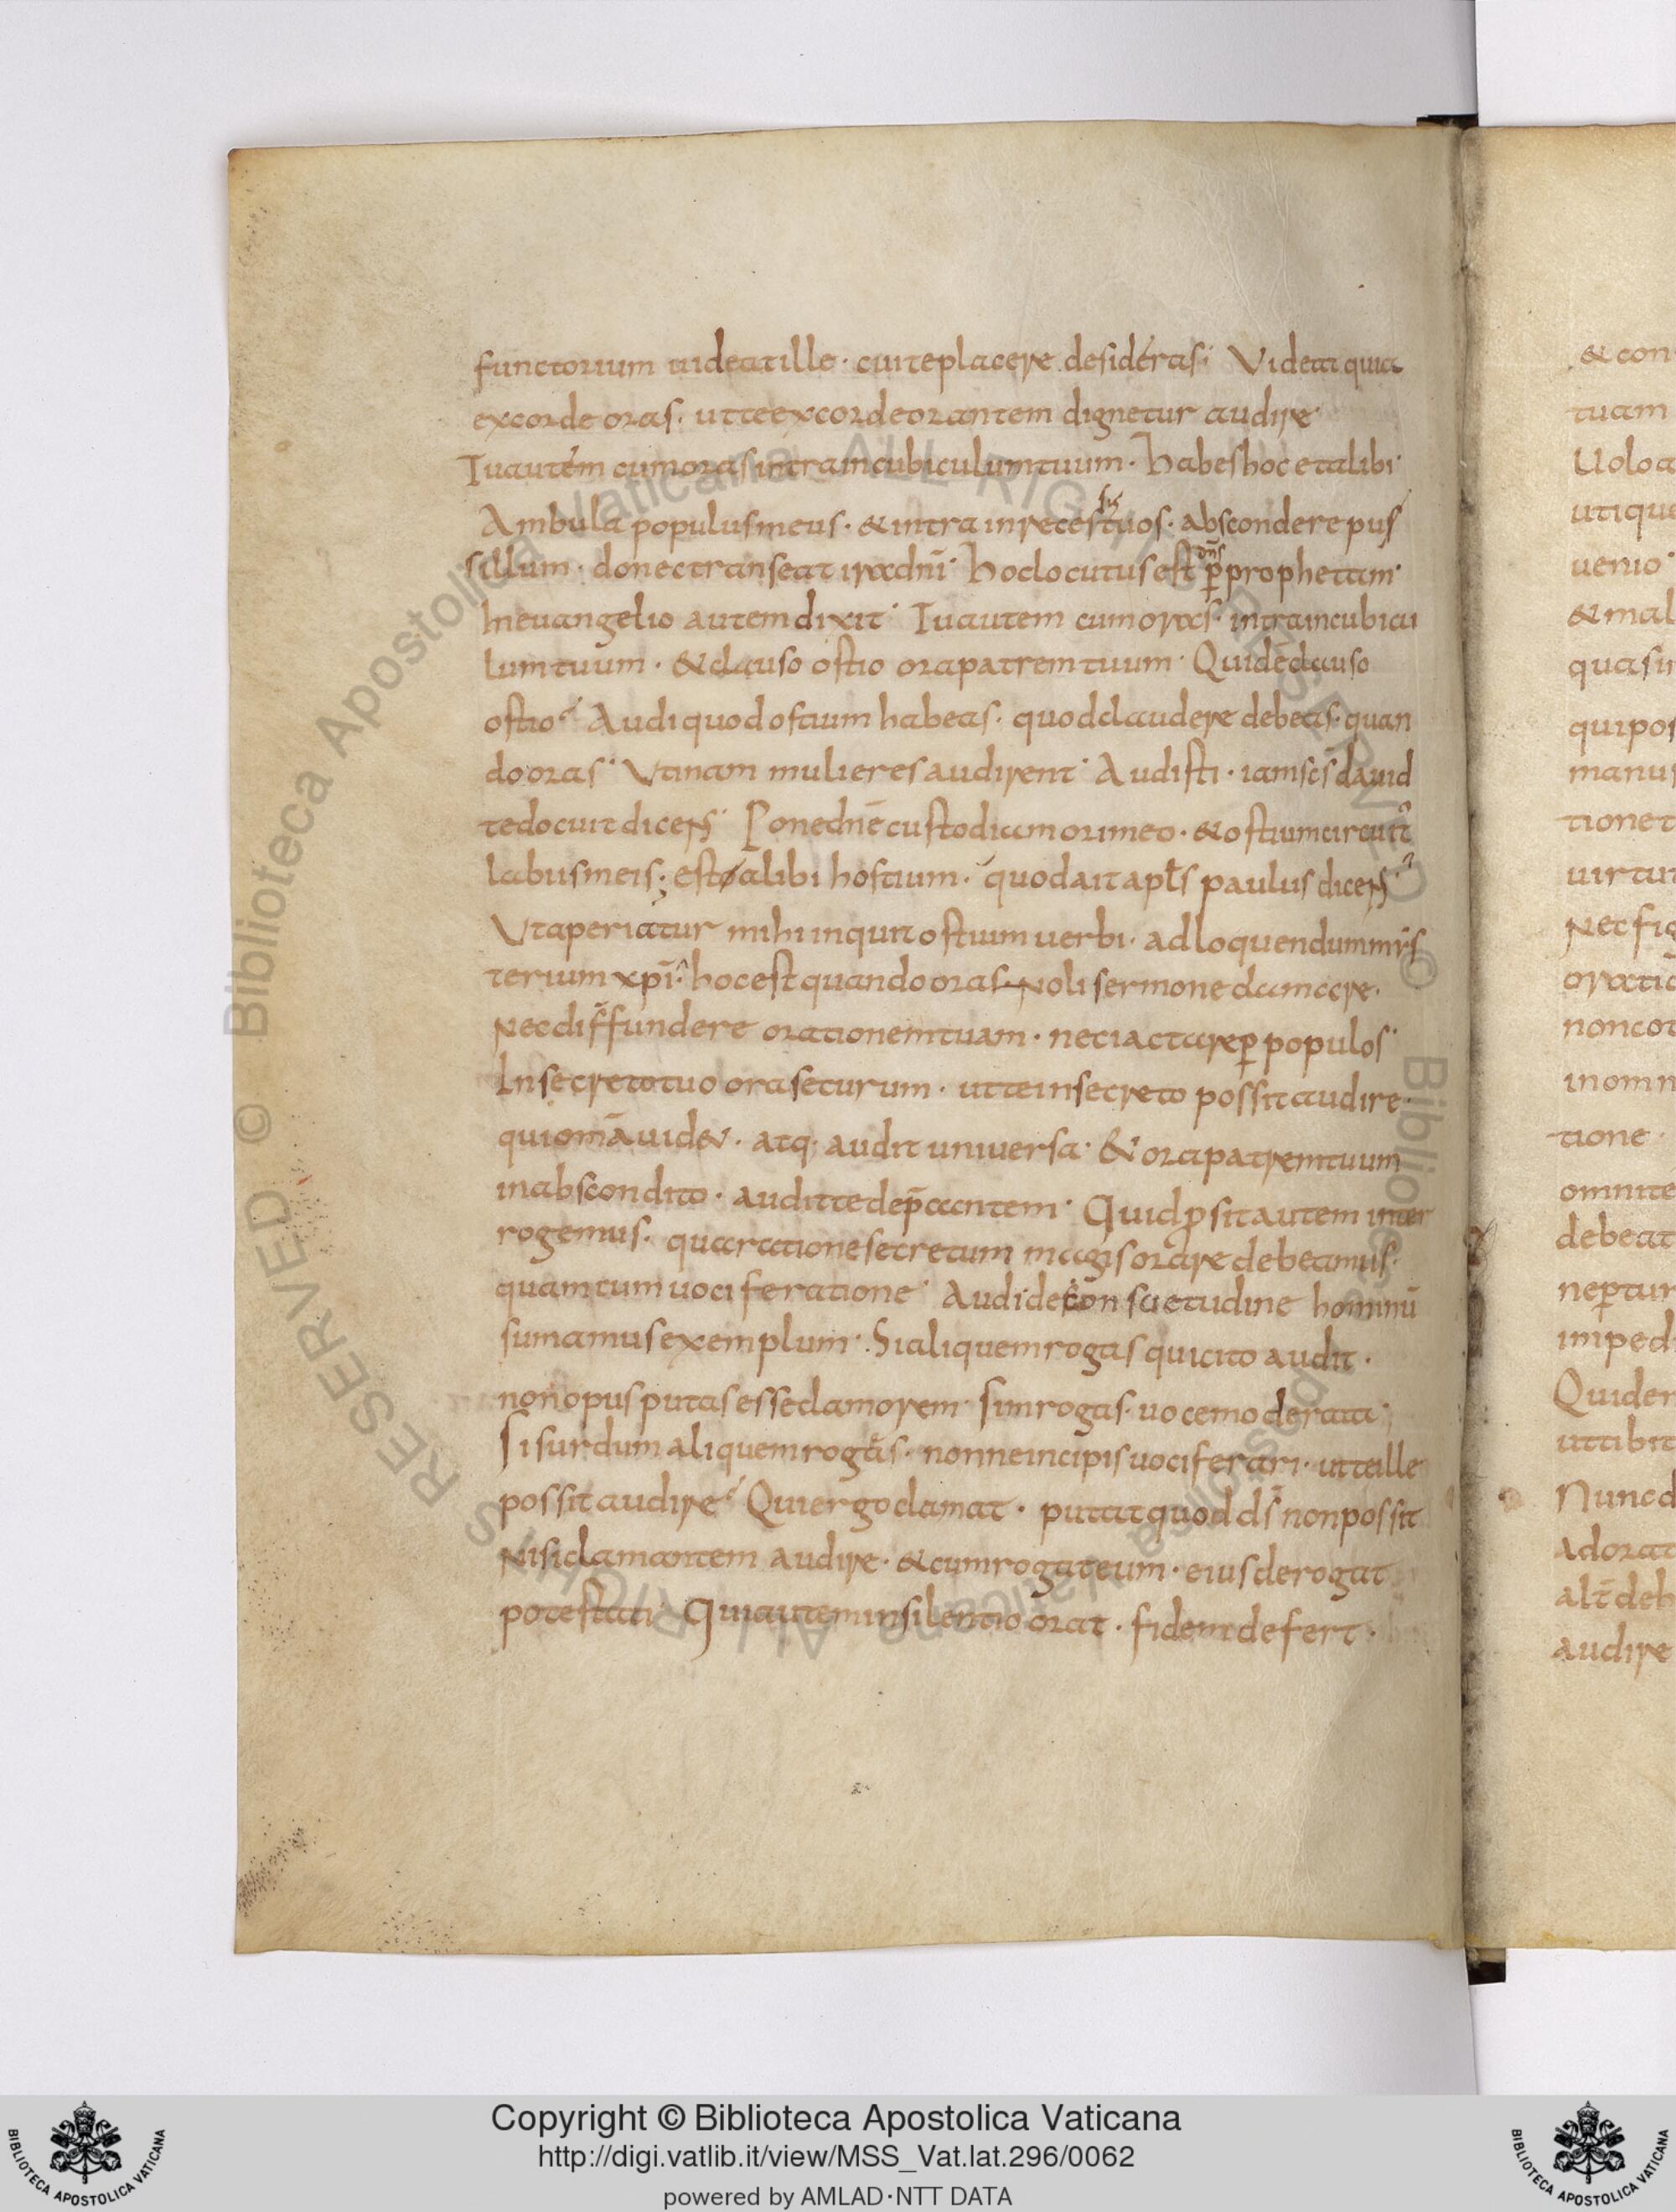 functorium uideat ille · cui te placere desideras · Videat quia
ex corde oras · ut te ex corde orantem dignetur audire ·
Tu autem cum oras intra in cubiculum tuum · habes hoc et alibi ·
Ambula populus meus · & intra in recessus tuos · abscondere pus
sillum · donec transeat ira dnī · hoc locutus est dns ꝑ prophetam ·
In euangelio autem dixit · Tu autem cum oras · intra in cubicu
lum tuum · & clauso ostio ora patrem tuum · Quid e clauso
ostio · Audi quod ostium habeas · quod claudere debeas · quan
do oras · Vtinam mulieres audirent · Audisti · iam scs dauid
te docuit dicens · Pone dnē custodiam ori meo · & ostium circuit
labiis meis · est alibi hostium · quod ait apls paulus dicens ·
Vt aperiatur mihi inquit ostium uerbi · ad loquendum mys
terium xpī · hoc est quando oras noli sermone clamare ·
nec diffundere orationem tuam · nec iactare ꝑ populos ·
In secreto tuo ora securum · ut te in secreto possit audire ·
qui omā uid& · atq · audit uniuersa · & ora patrem tuum
in abscondito · audit te dep̄cantem · Quid ꝓsit autem inter
rogemus · qua ratione secretum magis orare debeamus ·
quam cum uociferatione · Audi de consuetudine hominū
sumamus exemplum · Si aliquem rogas qui cito audit ·
non opus putas esse clamorem · sim rogas · uoce moderata ·
Si surdum aliquem rogas · nonne incipis uociferari · ut te ille
possit audire · Qui ergo clamat · putat quod ds̄ non possit
nisi clamantem audire · & cum rogat eum · eius derogat
potestati · Qui autem in silentio orat · fidem defert ·
& con
tuam
Uolo a
utique
uenio ·
& mal
quasi
qui pos
manus
tione t
uirtut
nec fig
oratio
non cot
in omn
tione ·
omnite
debeat
neꝑtur
imped
Quider
ut tibit
Nunc d
adorat
alt̄ deb
audire
© Biblioteca Apostolica Vaticana ALL RIGHTS RESERVED
© Biblioteca Apostolica Vaticana ALL RIGHTS RESERVED
BIBLIOTECA APOSTOLICA VATICANA
Copyright © Biblioteca Apostolica Vaticana
http://digi.vatlib.it/view/MSS_Vat.lat.296/0062
powered by AMLAD·NTT DATA
BIBLIOTECA APOSTOLICA VATICANA